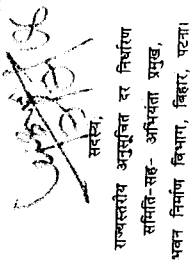 सदस्य,
राज्यस्तरीय अनुसूचित दर निर्धारण
समिति-सह- अभियंता प्रमुख,
भवन निर्माण विभाग, बिहार, पटना।